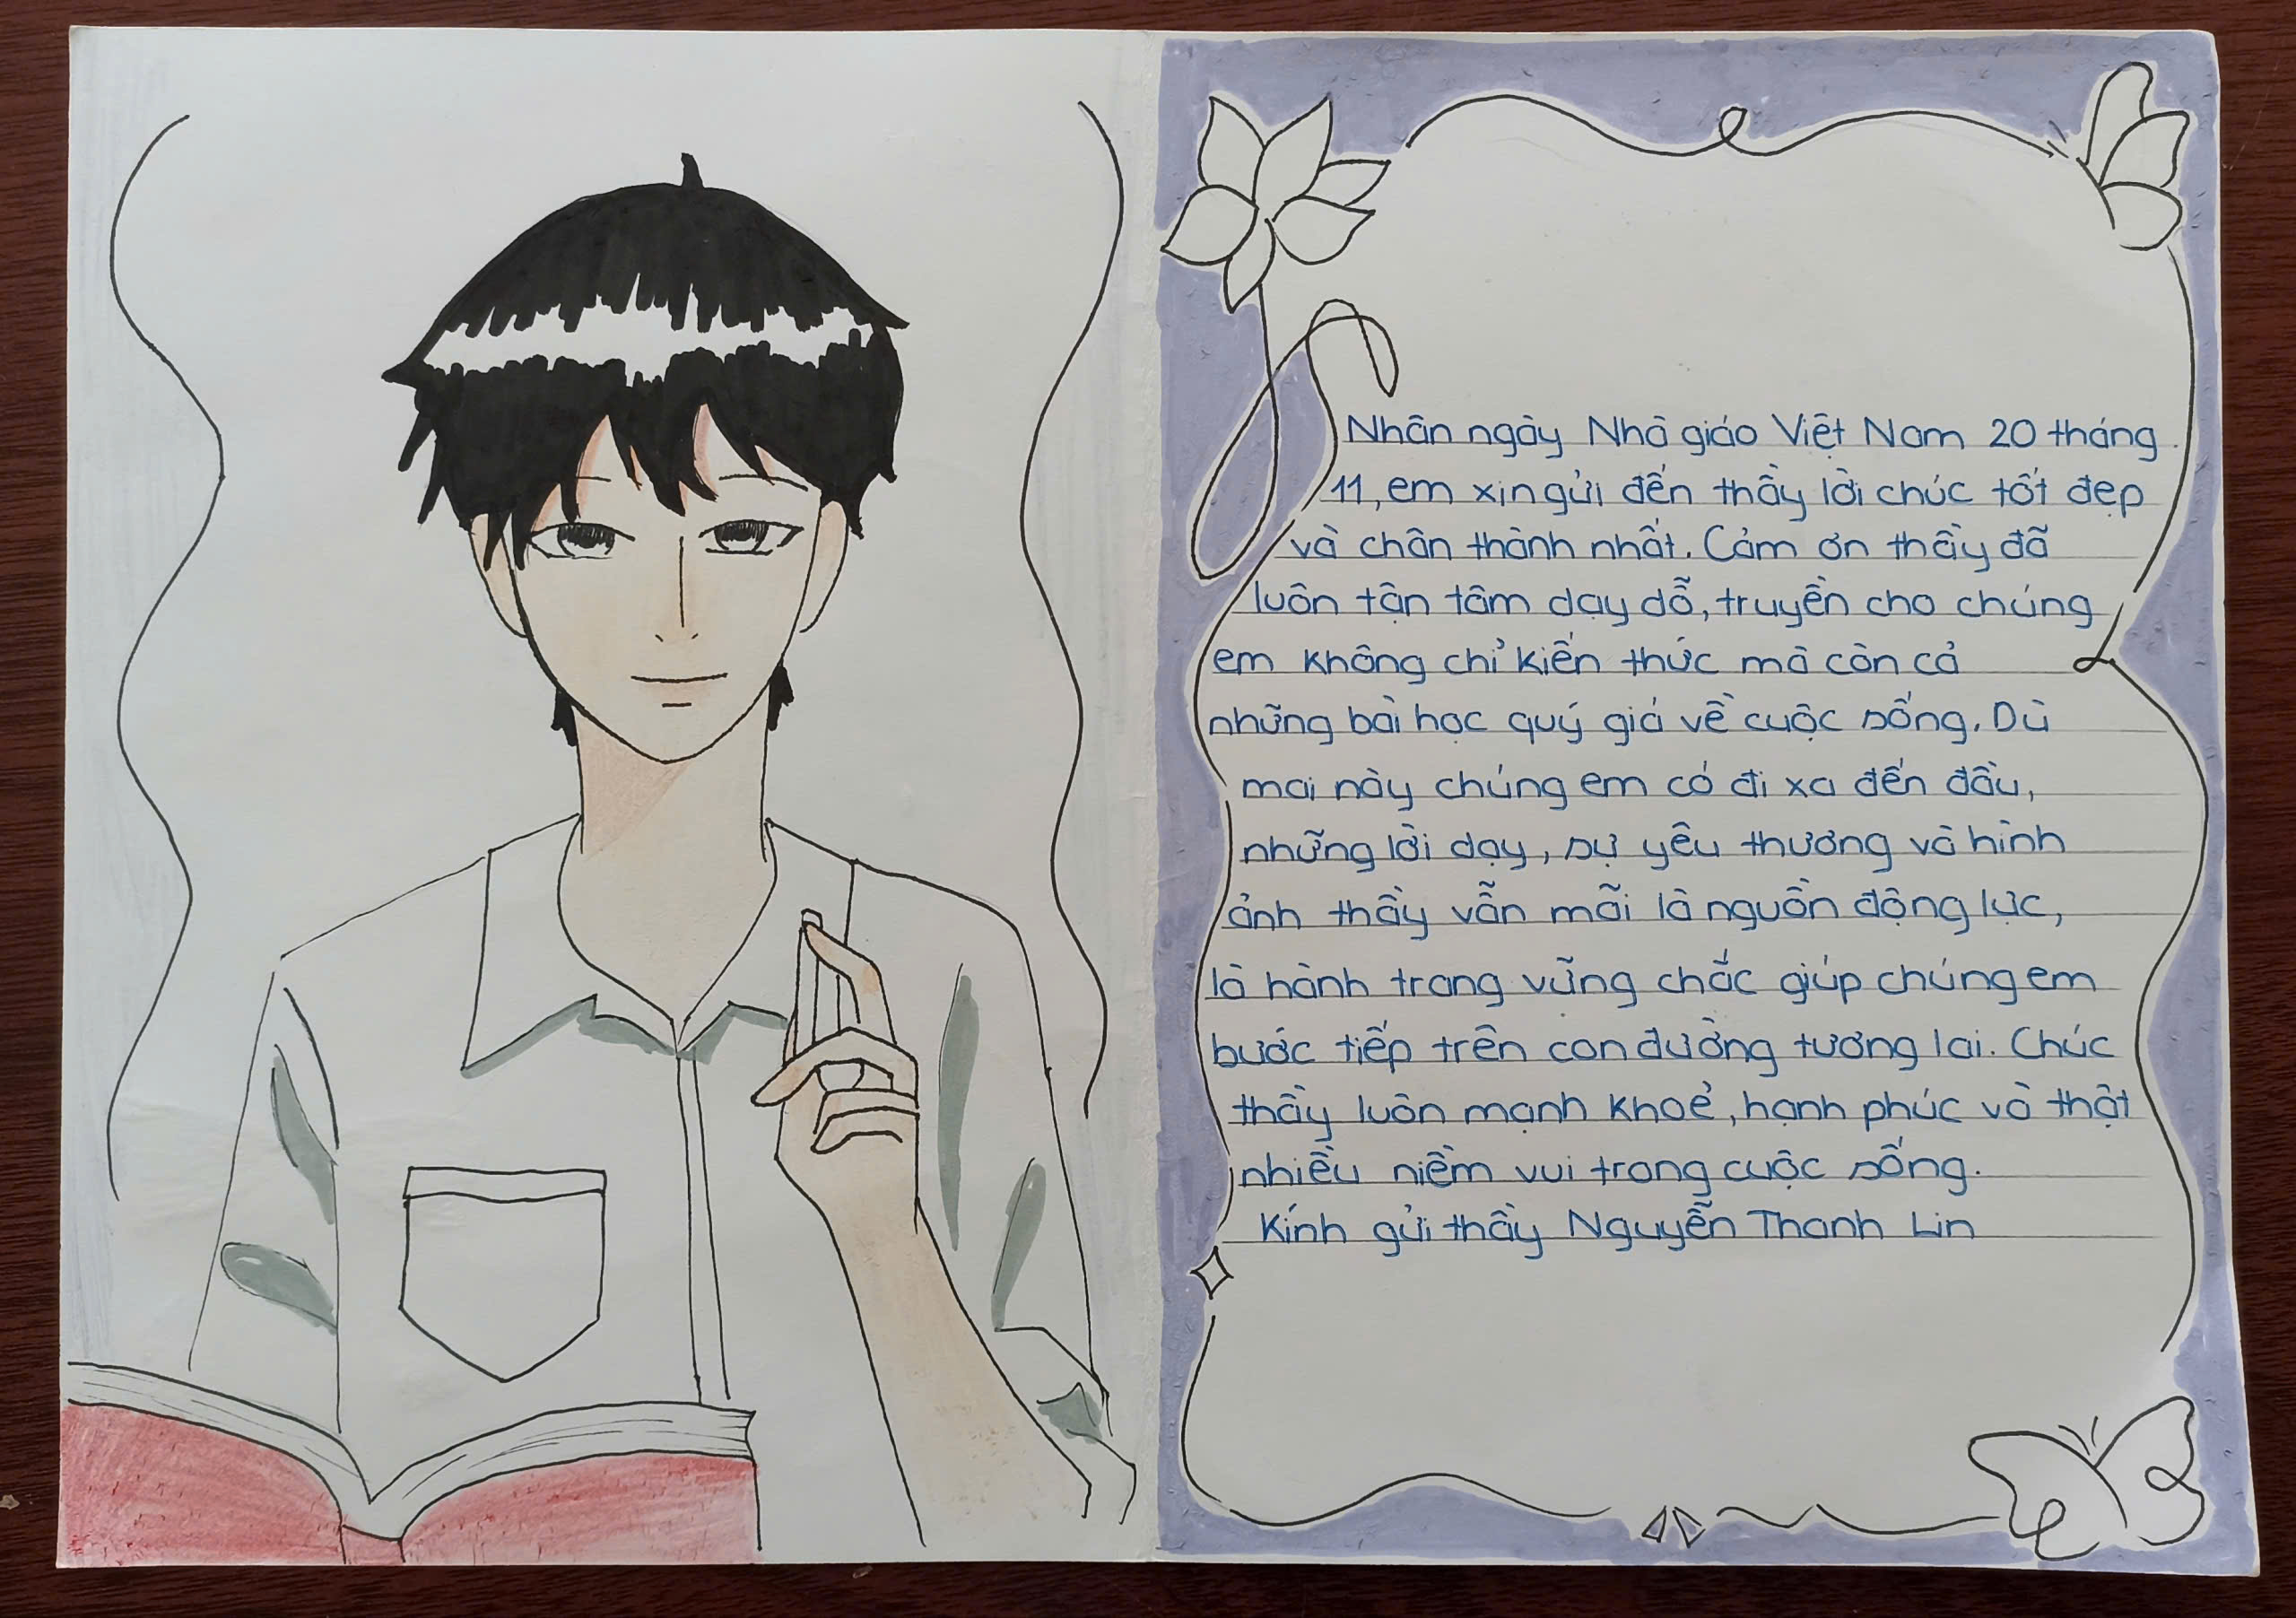 Nhân ngày Nhà giáo Việt Nam 20 tháng
11, em xin gửi đến thầy lời chúc tốt đẹp
và chân thành nhất. Cảm ơn thầy đã
luôn tận tâm dạy dỗ, truyền cho chúng
em không chỉ kiến thức mà còn cả
những bài học quý giá về cuộc sống. Dù
mai này chúng em có đi xa đến đâu,
những lời dạy, sự yêu thương và hình
ảnh thầy vẫn mãi là nguồn động lực,
là hành trang vững chắc giúp chúng em
bước tiếp trên con đường tương lai. Chúc
thầy luôn mạnh khoẻ, hạnh phúc và thật
nhiều niềm vui trong cuộc sống.
Kính gửi thầy Nguyễn Thanh Lin